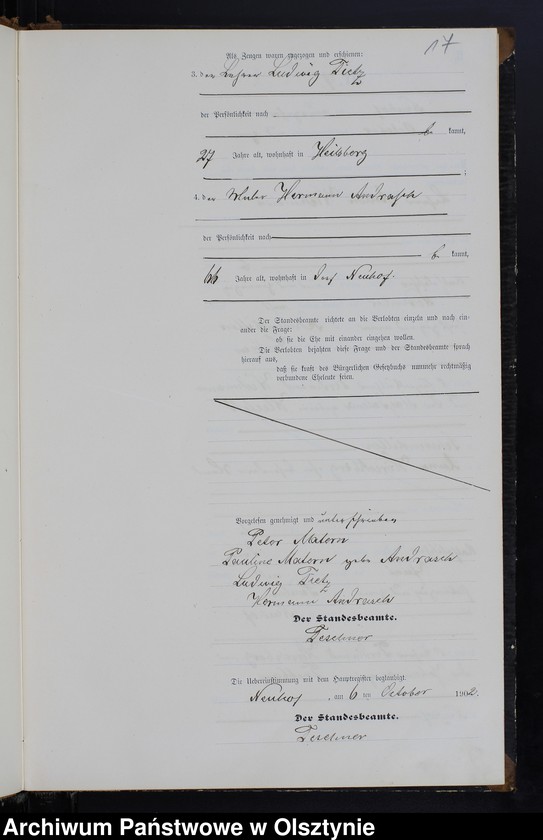 17
Als Zeugen waren zugezogen und erschienen:
3. der Lehrer Ludwig Tietz
der Persönlichkeit nach
be kannt,
27 Jahre alt, wohnhaft in Heilsberg
;
4. der Hermann Andrasch
der Persönlichkeit nach
be kannt,
66 Jahre alt, wohnhaft in Dorf Neuhof.
Der Standesbeamte richtete an die Verlobten einzeln und nach ein-
ander die Frage:
ob sie die Ehe mit einander eingehen wollen.
Die Verlobten bejahten diese Frage und der Standesbeamte sprach
hierauf aus,
daß sie kraft des Bürgerlichen Gesetzbuchs nunmehr rechtmäßig
verbundene Eheleute seien.
Vorgelesen, genehmigt und unterschrieben
Peter Matern
Pauline Matern geb. Andrasch
Ludwig Tietz
Hermann Andrasch
Der Standesbeamte.
Teschner
Die Uebereinstimmung mit dem Hauptregister beglaubigt.
Neuhof, am 6 ten October 1902.
Der Standesbeamte.
Teschner
Archiwum Państwowe w Olsztynie